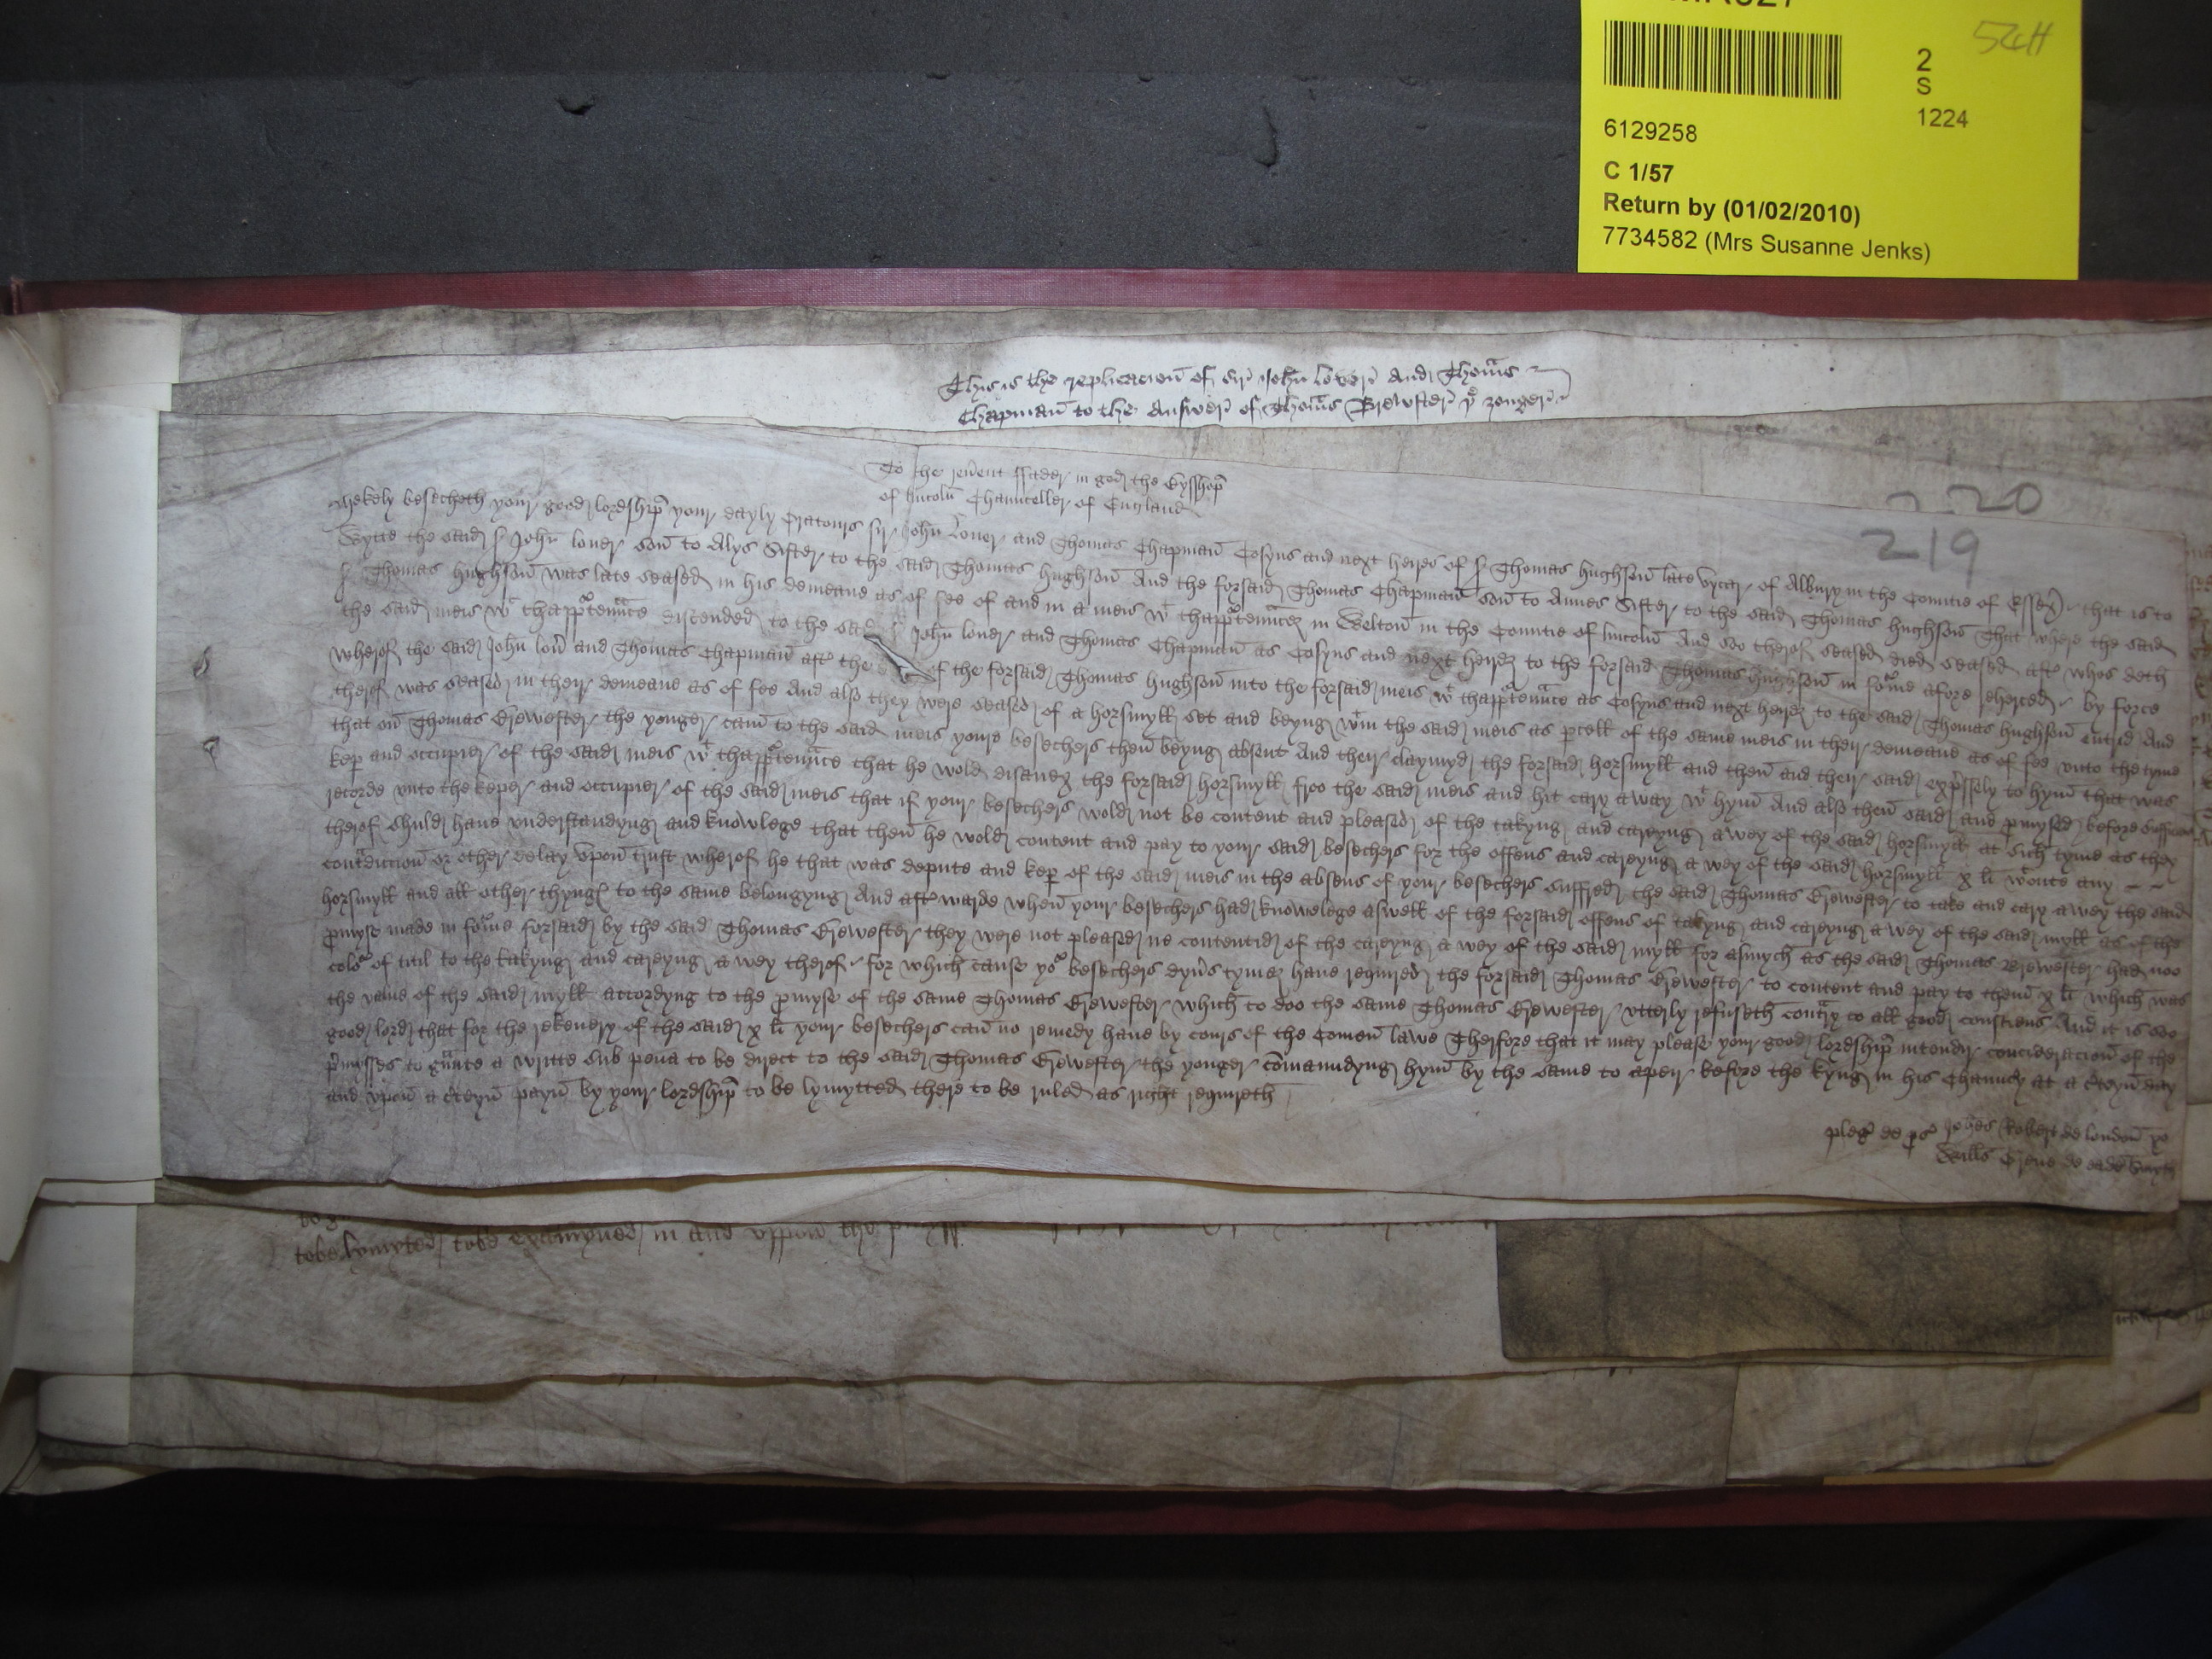 52cH
2
S
1224
6129258
C 1/57
Return by (01/02/2010)
7734582 (Mrs Susanne Jenks)
This is the replicacioñ of sir John lover and Thomas
Chapmañ to the Answer of Thomas Brewster yᵉ yonger
220
219
To the reuent ffader in god the Bysshop
of lincoln Chaunceller of England
Mekely besecheth your good lordship your dayly Oratours sir John Lover and Thomas Chapmañ Cosyns and next heires of sʳ Thomas hughsoñ late vycar of Albury in the Countie of Essex that is to
Wytte the said sʳ John lover soñ to Alys Sister to the said Thomas hughsoñ And the forsaid Thomas Chapmañ soñ to Annes Sister to the said Thomas hughsoñ That where the said
sʳ Thomas hughsoñ was late seased in his demeane as of fee of and in a meis wᵗ thappᵘrtenaᵃnce in Weltoñ in the Countie of lincoln And soo therof seased died seased after whos deth
the said meis wᵗ thappᵘrtenaᵃnce discended to the said sʳ John lover and Thomas Chapmañ as Cosyns and next heires to the forsaid Thomas hughsoñ in foᵘrme afore reherced by force
wherof the said John lover and Thomas Chapmañ after the of the forsaid Thomas hughsoñ into the forsaid meis wᵗ thappᵘrtenaᵃnce as Cosyns and next heires to the said Thomas hughsoñ entrid And
therof was seased in their demeane as of fee And also they were seased of a horsmyll set and beyng wᵗin the said meis as pcell of the same meis in their demeane as of fee vnto the tyme
that oñ Thomas Brewester the yonger cam to the said meis youre besechers theñ beyng absent And their claymyd the forsaid horsmyll and theñ and their said expressely to hym that was
kep and occupier of the said meis wᵗ thappᵘrtenaᵃnce that he wold disanex the forsaid horsmyll froo the said meis and hit cary away wᵗ hym And also theñ said and pmysed before suffic
recorde vnto the keper and occupier of the said meis that if your besechers wold not be content and pleased of the takyng and careyng awey of the said horsmyll at sich tyme as they
therof shuld haue vnderstandyng and knowlege that theñ he wold content and pay to your said besechers for the offens and careyng a wey of the said horsmyll x li wᵗoute any
contᵃdiccioñ or other delay vpoñ trust wherof he that was depute and kep of the said meis in the absens of your besechers suffred the said Thomas Brewester to take and cary awey the said
horsmyll and all other thynges to the same belongyng And afterwarde wheñ your besechers had knowelege aswell of the forsaid offens of takyng and careyng awey of the said myll as of the
pmyse made in foᵘrme forsaid by the said Thomas Brewester they were not pleased ne contentid of the careyng a wey of the said myll for asmych as the said Thomas Brewester had noo
coloᵘr of titil to the takyng and careyng a wey therof for which cause yoᵘr besechers dyuers tymes haue required the forsaid Thomas Brewester to content and pay to theñ x li which was
the value of the said myll accordyng to the pmyse of the same Thomas Brewester which to doo the same Thomas Brewester vtterly refuseth contᵃry to all good consciens And it is soo
good lord that for the rekeuery of the said x li your besechers cañ no remedy haue by cours of the Comeñ lawe Therfore that it may please your good lordship in tendir concideracioñ of the
pmysses to gᵃunte a writte sub pena to be direct to the said Thomas Brewester the yonger comaundyng hym by the same to apeir before the kyng in his Chauncly at a cteyñ day
and vpoñ a cteyñ payñ by your lordship to be lymytted there to be ruled as right requireth
pleg de ps Johes Robert de londoñ
Willms Grene de eadem
tobe lymyted tobe examyned in and vppoñ the